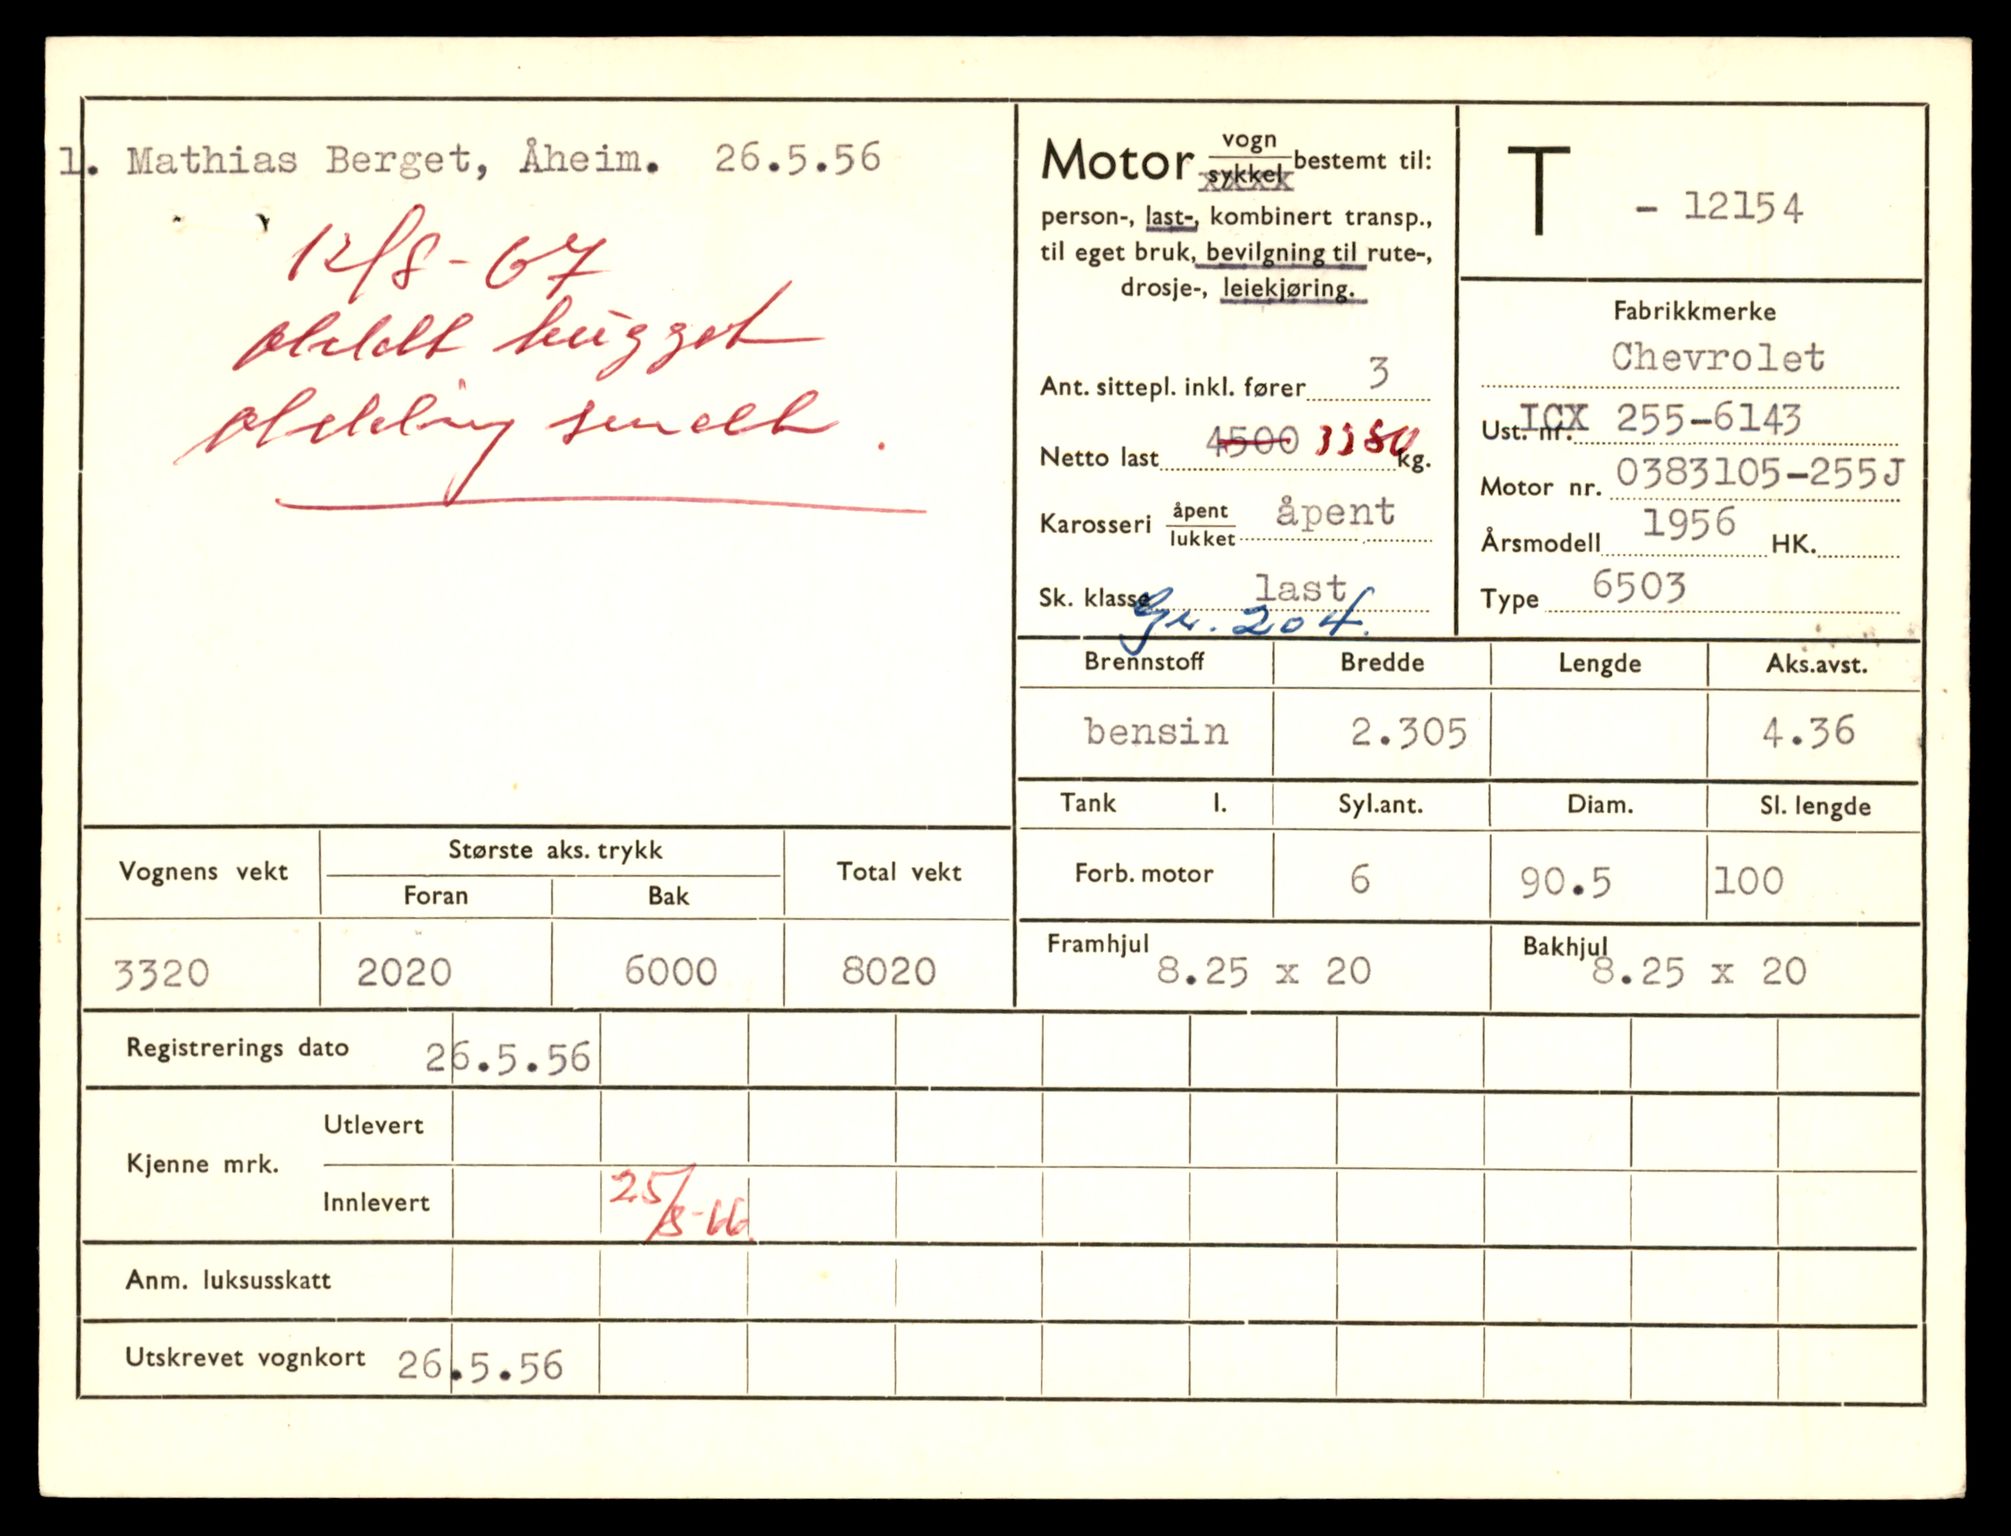 1. Mathias Berget, Åheim. 26.5.56
12/8-67
meldt hugget
melding sendt.
Motor vogn
sykkel bestemt til:
person-, last-, kombinert transp.,
til eget bruk, bevilgning til rute-,
drosje-, leiekjøring.
Ant. sittepl. inkl. fører 3
Netto last 4500 kg.
Karosseri åpent
lukket åpent
Sk. klasse last
Gr. 204.
T - 12154
Fabrikkmerke
Chevrolet
Ust. nr. ICX 255-6143
Motor nr. 0383105-255J
Årsmodell 1956 HK.
Type 6503
Brennstoff Bredde Lengde Aks.avst.
bensin 2.305 4.36
Tank l. Syl.ant. Diam. Sl. lengde
Forb. motor 6 90.5 100
Framhjul 8.25 x 20 Bakhjul 8.25 x 20
Vognens vekt Største aks. trykk Total vekt
Foran Bak
3320 2020 6000 8020
Registrerings dato 26.5.56
Kjenne mrk. Utlevert
Innlevert 25/8-66.
Anm. luksusskatt
Utskrevet vognkort 26.5.56